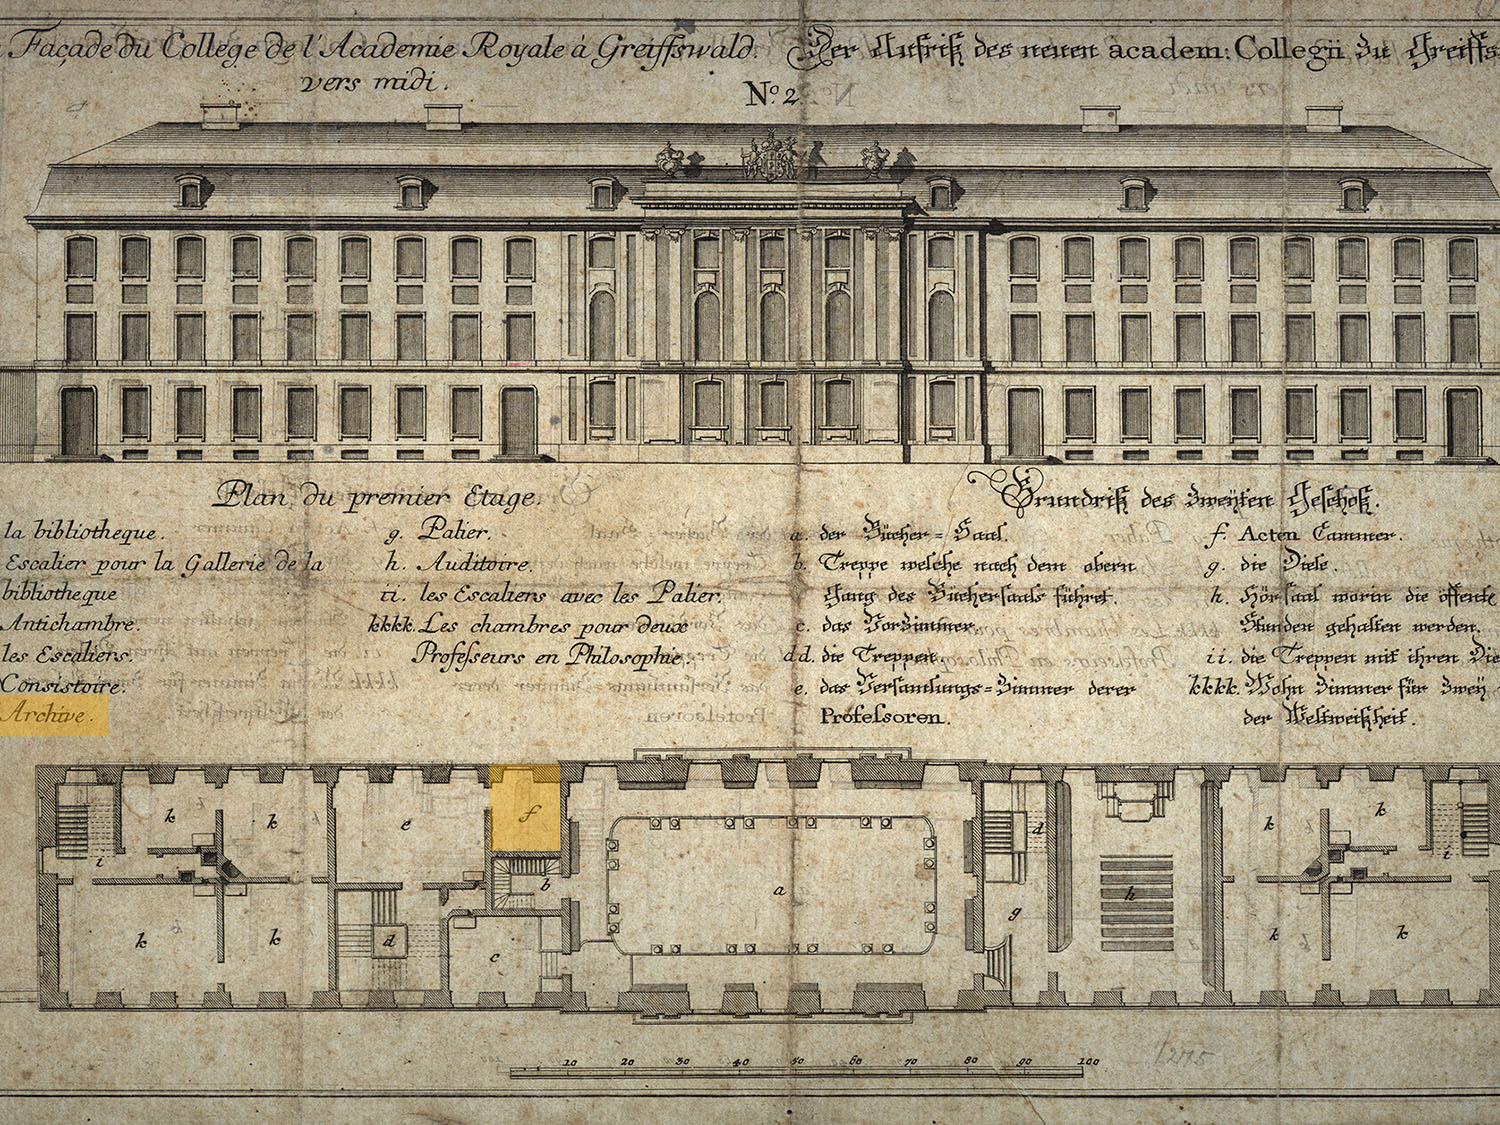 Façade du College de l'Academie Royale à Greiffswald.
vers midi.
Der Aufriß des neuen academ: Collegii zu Greiffs
Nº. 2
Plan du premier Etage.
la bibliotheque.
Escalier pour la Gallerie de la
bibliotheque
Antichambre.
les Escaliers.
Consistoire.
Archive.
g. Palier.
h. Auditoire.
ii. les Escaliers avec les Palier.
kkkk. Les chambres pour deux
Professeurs en Philosophie.
Grundriß des zweÿten Geschoß.
a. der Bücher=Saal.
b. Treppe welche nach dem obern
Gang des Büchersaals führet.
c. das Vorzimmer
dd. die Treppen.
e. das Versamlungs=Zimmer derer
Professoren.
f. Acten Cammer.
g. die Diele.
h. Hörsaal worin die öffentl
Stunden gehalten werden.
ii. die Treppen mit ihren Die
kkkk. Wohn Zimmer für zweÿ
der Weltweißheit.
k k e f i b a d g h k k i
k k d c k k
10 20 30 40 50 60 70 80 90 100